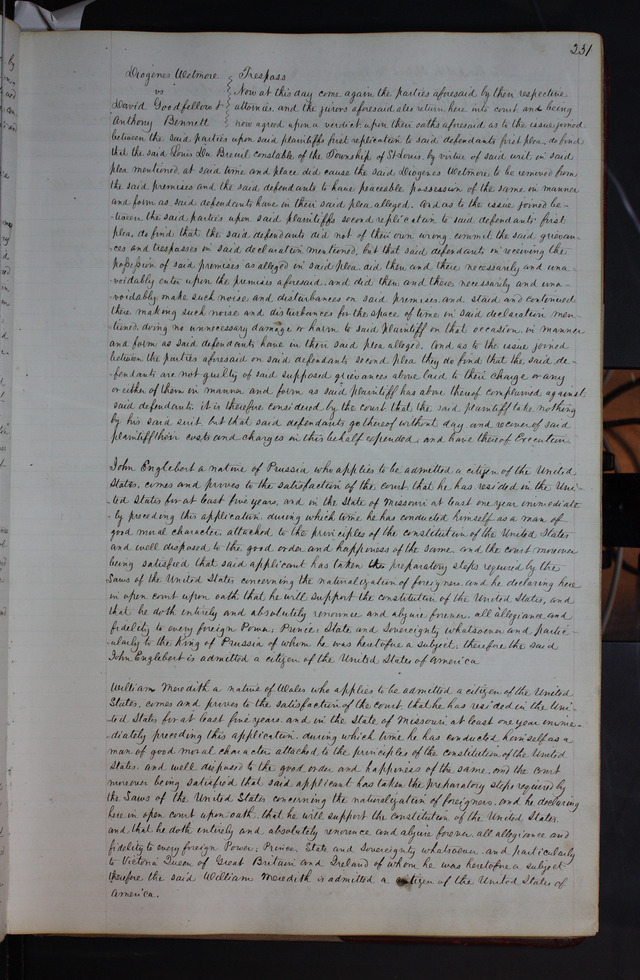 231
Diogenes Wetmore } Trespass
vs } Now at this day come again the parties aforesaid by their respective
David Goodfellow & } attornies, and the jurors aforesaid also return here into court and being
Anthony Bennett } now agreed upon a verdict upon their oaths aforesaid as to the issue joined
between the said parties upon said plaintiffs first replication to said defendants first plea, do find
that the said Louis Du Breuil constable of the Township of St Louis, by virtue of said writ in said
plea mentioned, at said time and place did cause the said Diogenes Wetmore to be removed from
the said premises and the said defendants to have peaceable possession of the same in manner
and form as said defendants have in their said plea alleged. And as to the issue joined be-
-tween the said parties upon said plaintiffs second replication to said defendants first
plea, do find that the said defendants did not of their own wrong commit the said grievan-
-ces and trespasses in said declaration mentioned, but that said defendants in receiving the
possession of said premises as alleged in said plea did then and there necessarily and una-
-voidably enter upon the premises aforesaid, and did then and there necessarily and una-
-voidably make such noise and disturbances on said premises, and staid and continued
there making such noise and disturbances for the space of time in said declaration men-
-tioned, doing no unnecessary damage or harm to said plaintiff on that occasion in manner
and form as said defendants have in their said plea alleged. And as to the issue joined
between the parties aforesaid on said defendants second plea they do find that the said de-
-fendants are not guilty of said supposed grievances above laid to their charge or any
or either of them in manner and form as said plaintiff has above thereof complained against
said defendants, it is therefore considered by the court that the said plaintiff take nothing
by his said suit, but that said defendants go thereof without day and recover of said
plaintiff their costs and charges in this behalf expended, and have thereof Execution
John Englebert a native of Prussia who applies to be admitted a citizen of the United
States, comes and proves to the satisfaction of the court, that he has resided in the Uni-
-ted States for at least five years, and in the State of Missouri at least one year immediate-
-ly preceding this application, during which time he has conducted himself as a man of
good moral character, attached to the principles of the constitution of the United States
and well disposed to the good order and happiness of the same, and the court moreover
being satisfied that said applicant has taken the preparatory steps required by the
Laws of the United States concerning the naturalization of foreigners, and he declaring here
in open court upon oath that he will support the constitution of the United States, and
that he doth entirely and absolutely renounce and abjure forever, all allegiance and
fidelity to every foreign Power, Prince, State and Sovereignty whatsoever and partic-
-ularly to the King of Prussia of whom he was heretofore a subject, therefore the said
John Englebert is admitted a citizen of the United States of America
William Meredith a native of Wales who applies to be admitted a citizen of the United
States, comes and proves to the satisfaction of the court, that he has resided in the Uni-
-ted States for at least five years and in the State of Missouri at least one year imme-
-diately preceding this application, during which time he has conducted himself as a
man of good moral character, attached to the principles of the constitution of the United
States, and well disposed to the good order and happiness of the same, and the court
moreover being satisfied that said applicant has taken the preparatory steps required by
the Laws of the United States concerning the naturalization of foreigners, and he declaring
here in open court upon oath, that he will support the constitution of the United States,
and that he doth entirely and absolutely renounce and abjure forever, all allegiance and
fidelity to every foreign Power, Prince, State and Sovereignty whatsoever, and particularly
to Victoria Queen of Great Britain and Ireland of whom he was heretofore a subject
therefore the said William Meredith is admitted a citizen of the United States of
America.